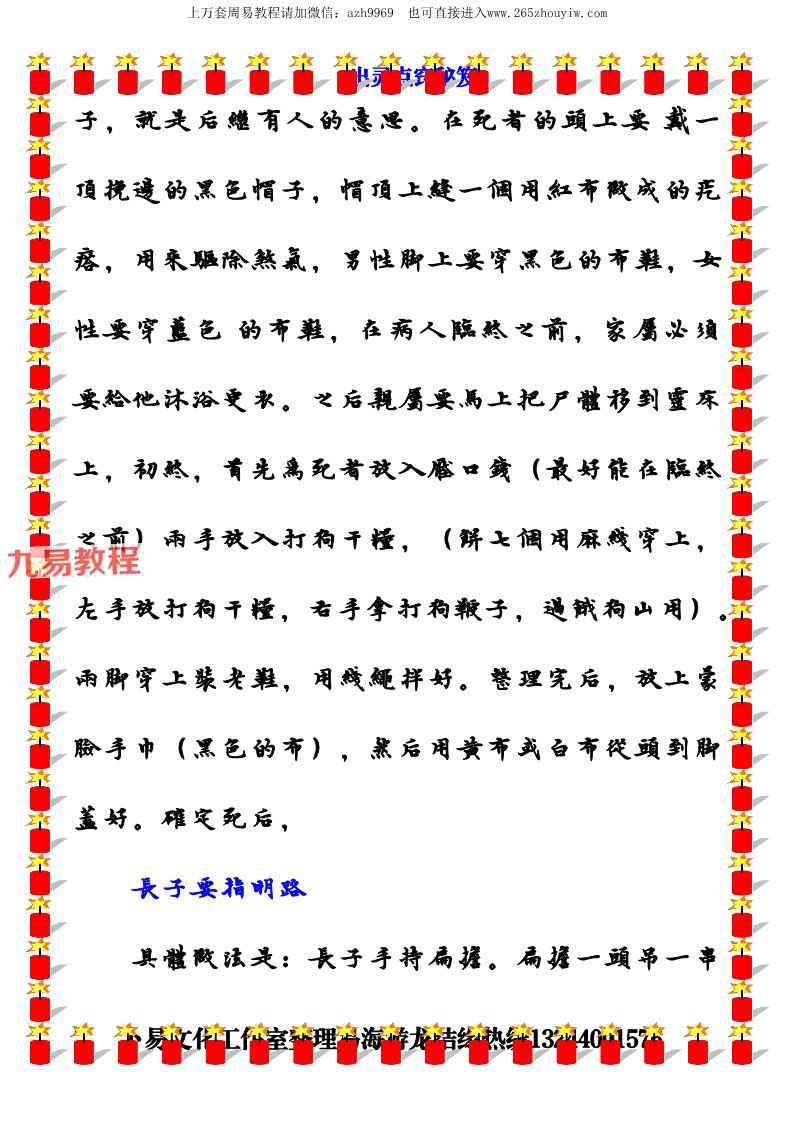 上万套周易教程请加微信：azh9969 也可直接进入www.265zhouyiw.com
子，就是后繼有人的意思。在死者的頭上要 戴一
頂挽邊的黑色帽子，帽頂上縫一個用紅布做成的疙
瘩，用來驅除煞氣，男性脚上要穿黑色的布鞋，女
性要穿藍色 的布鞋，在病人臨終之前，家屬必須
要給他沐浴更衣。之后親屬要馬上把尸體移到靈床
上，初終，首先爲死者放入壓口錢（最好能在臨終
之前）兩手放入打狗干糧，（餅七個用麻綫穿上，
九易教程
左手放打狗干糧，右手拿打狗鞭子，過餓狗山用）。
兩脚穿上裝老鞋，用綫繩拌好。整理完后，放上蒙
臉手巾（黑色的布），然后用黄布或白布從頭到脚
蓋好。確定死后，
長子要指明路
具體做法是：長子手持扁擔。扁擔一頭吊一串